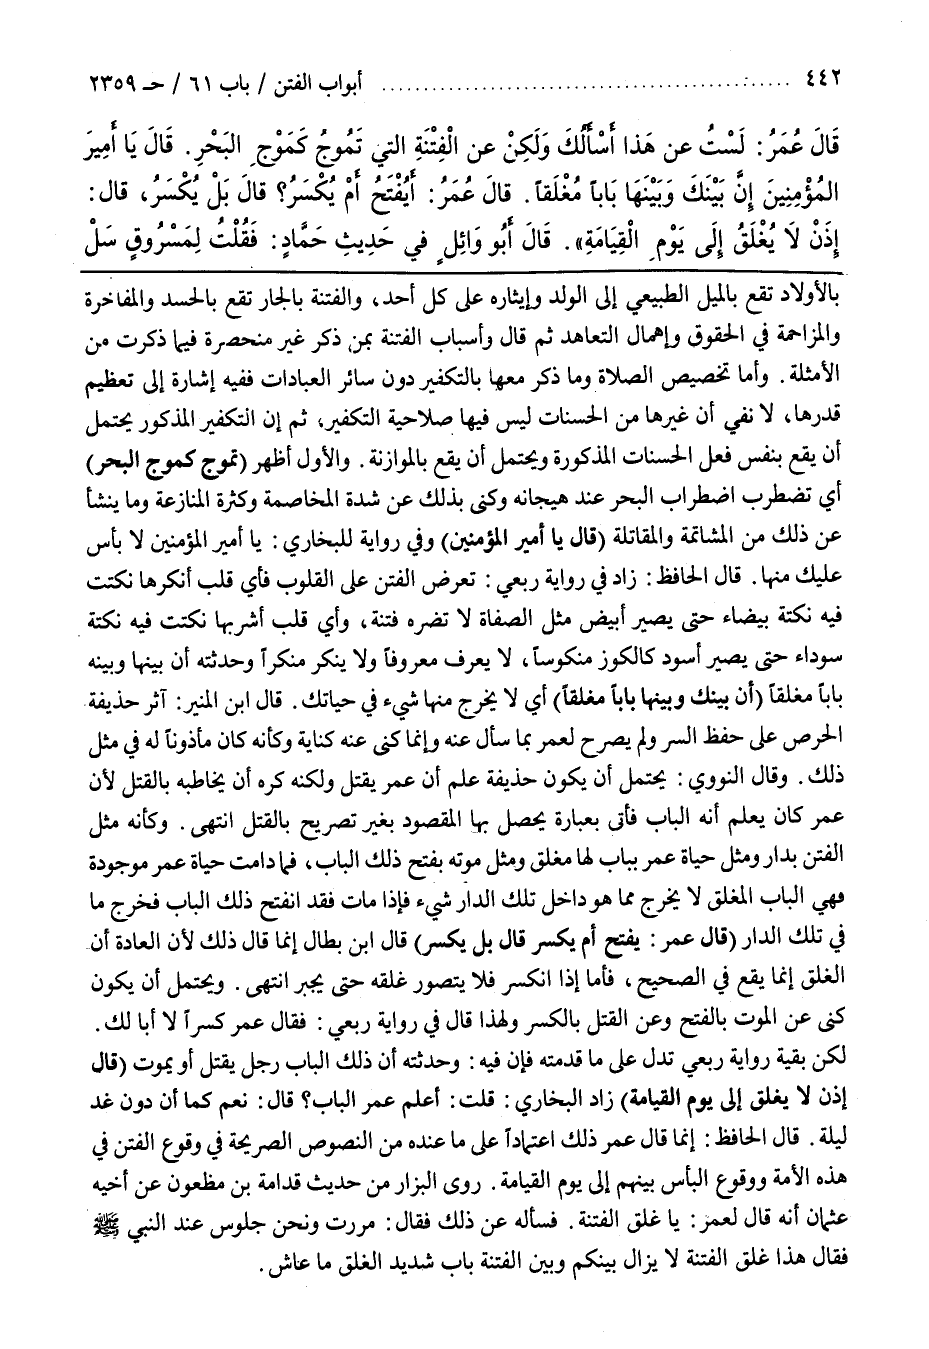 ٤٤٢ ........................ أبواب الفتن / باب ٦١ / حـ ٢٣٥٩
قَالَ عُمَرُ: لَسْتُ عن هَذا أَسْأَلُكَ وَلَكِنْ عن الْفِتْنَةِ التي تَمُوجُ كَمَوْجِ البَحْرِ. قَالَ يَا أَمِيرَ
المُؤْمِنِينَ إِنَّ بَيْنَكَ وَبَيْنَهَا بَاباً مُغْلَقاً. قالَ عُمَرُ: أَيُفْتَحُ أَمْ يُكْسَرُ؟ قالَ بَلْ يُكْسَرُ، قال:
إِذَنْ لَا يُغْلَقُ إِلَى يَوْمِ الْقِيَامَةِ». قَالَ أَبُو وَائِلٍ في حَدِيثِ حَمَّادٍ: فَقُلْتُ لِمَسْرُوقٍ سَلْ
بالأولاد تقع بالميل الطبيعي إلى الولد وإيثاره على كل أحد، والفتنة بالجار تقع بالحسد والمفاخرة
والمزاحمة في الحقوق وإهمال التعاهد ثم قال وأسباب الفتنة بمن ذكر غير منحصرة فيما ذكرت من
الأمثلة. وأما تخصيص الصلاة وما ذكر معها بالتكفير دون سائر العبادات ففيه إشارة إلى تعظيم
قدرها، لا نفي أن غيرها من الحسنات ليس فيها صلاحية التكفير، ثم إن التكفير المذكور يحتمل
أن يقع بنفس فعل الحسنات المذكورة ويحتمل أن يقع بالموازنة. والأول أظهر (تموج كموج البحر)
أي تضطرب اضطراب البحر عند هيجانه وكنى بذلك عن شدة المخاصمة وكثرة المنازعة وما ينشأ
عن ذلك من المشاتمة والمقاتلة (قال يا أمير المؤمنين) وفي رواية للبخاري: يا أمير المؤمنين لا بأس
عليك منها. قال الحافظ: زاد في رواية ربعي: تعرض الفتن على القلوب فأي قلب أنكرها نكتت
فيه نكتة بيضاء حتى يصير أبيض مثل الصفاة لا تضره فتنة، وأي قلب أشربها نكتت فيه نكتة
سوداء حتى يصير أسود كالكوز منكوساً، لا يعرف معروفاً ولا ينكر منكراً وحدثته أن بينها وبينه
باباً مغلقاً (أن بينك وبينها باباً مغلقاً) أي لا يخرج منها شيء في حياتك. قال ابن المنير: آثر حذيفة
الحرص على حفظ السر ولم يصرح لعمر بما سأل عنه وإنما كنى عنه كناية وكأنه كان مأذوناً له في مثل
ذلك. وقال النووي: يحتمل أن يكون حذيفة علم أن عمر يقتل ولكنه كره أن يخاطبه بالقتل لأن
عمر كان يعلم أنه الباب فأتى بعبارة يحصل بها المقصود بغير تصريح بالقتل انتهى. وكأنه مثل
الفتن بدار ومثل حياة عمر بباب لها مغلق ومثل موته بفتح ذلك الباب، فما دامت حياة عمر موجودة
فهي الباب المغلق لا يخرج مما هو داخل تلك الدار شيء فإذا مات فقد انفتح ذلك الباب فخرج ما
في تلك الدار (قال عمر: يفتح أم يكسر قال بل يكسر) قال ابن بطال إنما قال ذلك لأن العادة أن
الغلق إنما يقع في الصحيح، فأما إذا انكسر فلا يتصور غلقه حتى يجبر انتهى. ويحتمل أن يكون
كنى عن الموت بالفتح وعن القتل بالكسر ولهذا قال في رواية ربعي: فقال عمر كسراً لا أبا لك.
لكن بقية رواية ربعي تدل على ما قدمته فإن فيه: وحدثته أن ذلك الباب رجل يقتل أو يموت (قال
إذن لا يغلق إلى يوم القيامة) زاد البخاري: قلت: أعلم عمر الباب؟ قال: نعم كما أن دون غد
ليلة. قال الحافظ: إنما قال عمر ذلك اعتماداً على ما عنده من النصوص الصريحة في وقوع الفتن في
هذه الأمة ووقوع البأس بينهم إلى يوم القيامة. روى البزار من حديث قدامة بن مظعون عن أخيه
عثمان أنه قال لعمر: يا غلق الفتنة. فسأله عن ذلك فقال: مررت ونحن جلوس عند النبي ﷺ
فقال هذا غلق الفتنة لا يزال بينكم وبين الفتنة باب شديد الغلق ما عاش.